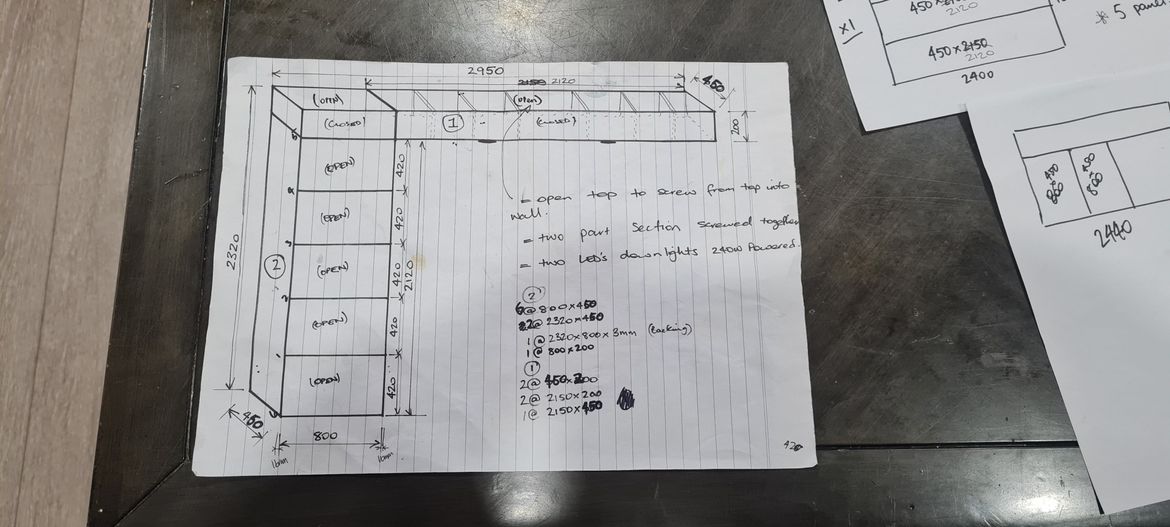 2950
2150 2120
450
(OPEN)
(OPEN)
(CLOSED)
1
(CLOSED)
200
(OPEN)
420
(OPEN)
420
2320
2
(OPEN)
420
2120
(OPEN)
420
(OPEN)
420
450
800
16mm
16mm
= open top to screw from top into
wall.
= two part section screwed together
= two LED's downlights 240w Powered.
2
6@ 800x450
2@ 2320x450
1@ 2320x800x3mm (backing)
1@ 800x200
1
2@ 450x200
2@ 2150x200
1@ 2150x450
420
x1
450x2150
2120
450x2150
2120
2400
* 5 panel
450 x 860
450 x 860
2440